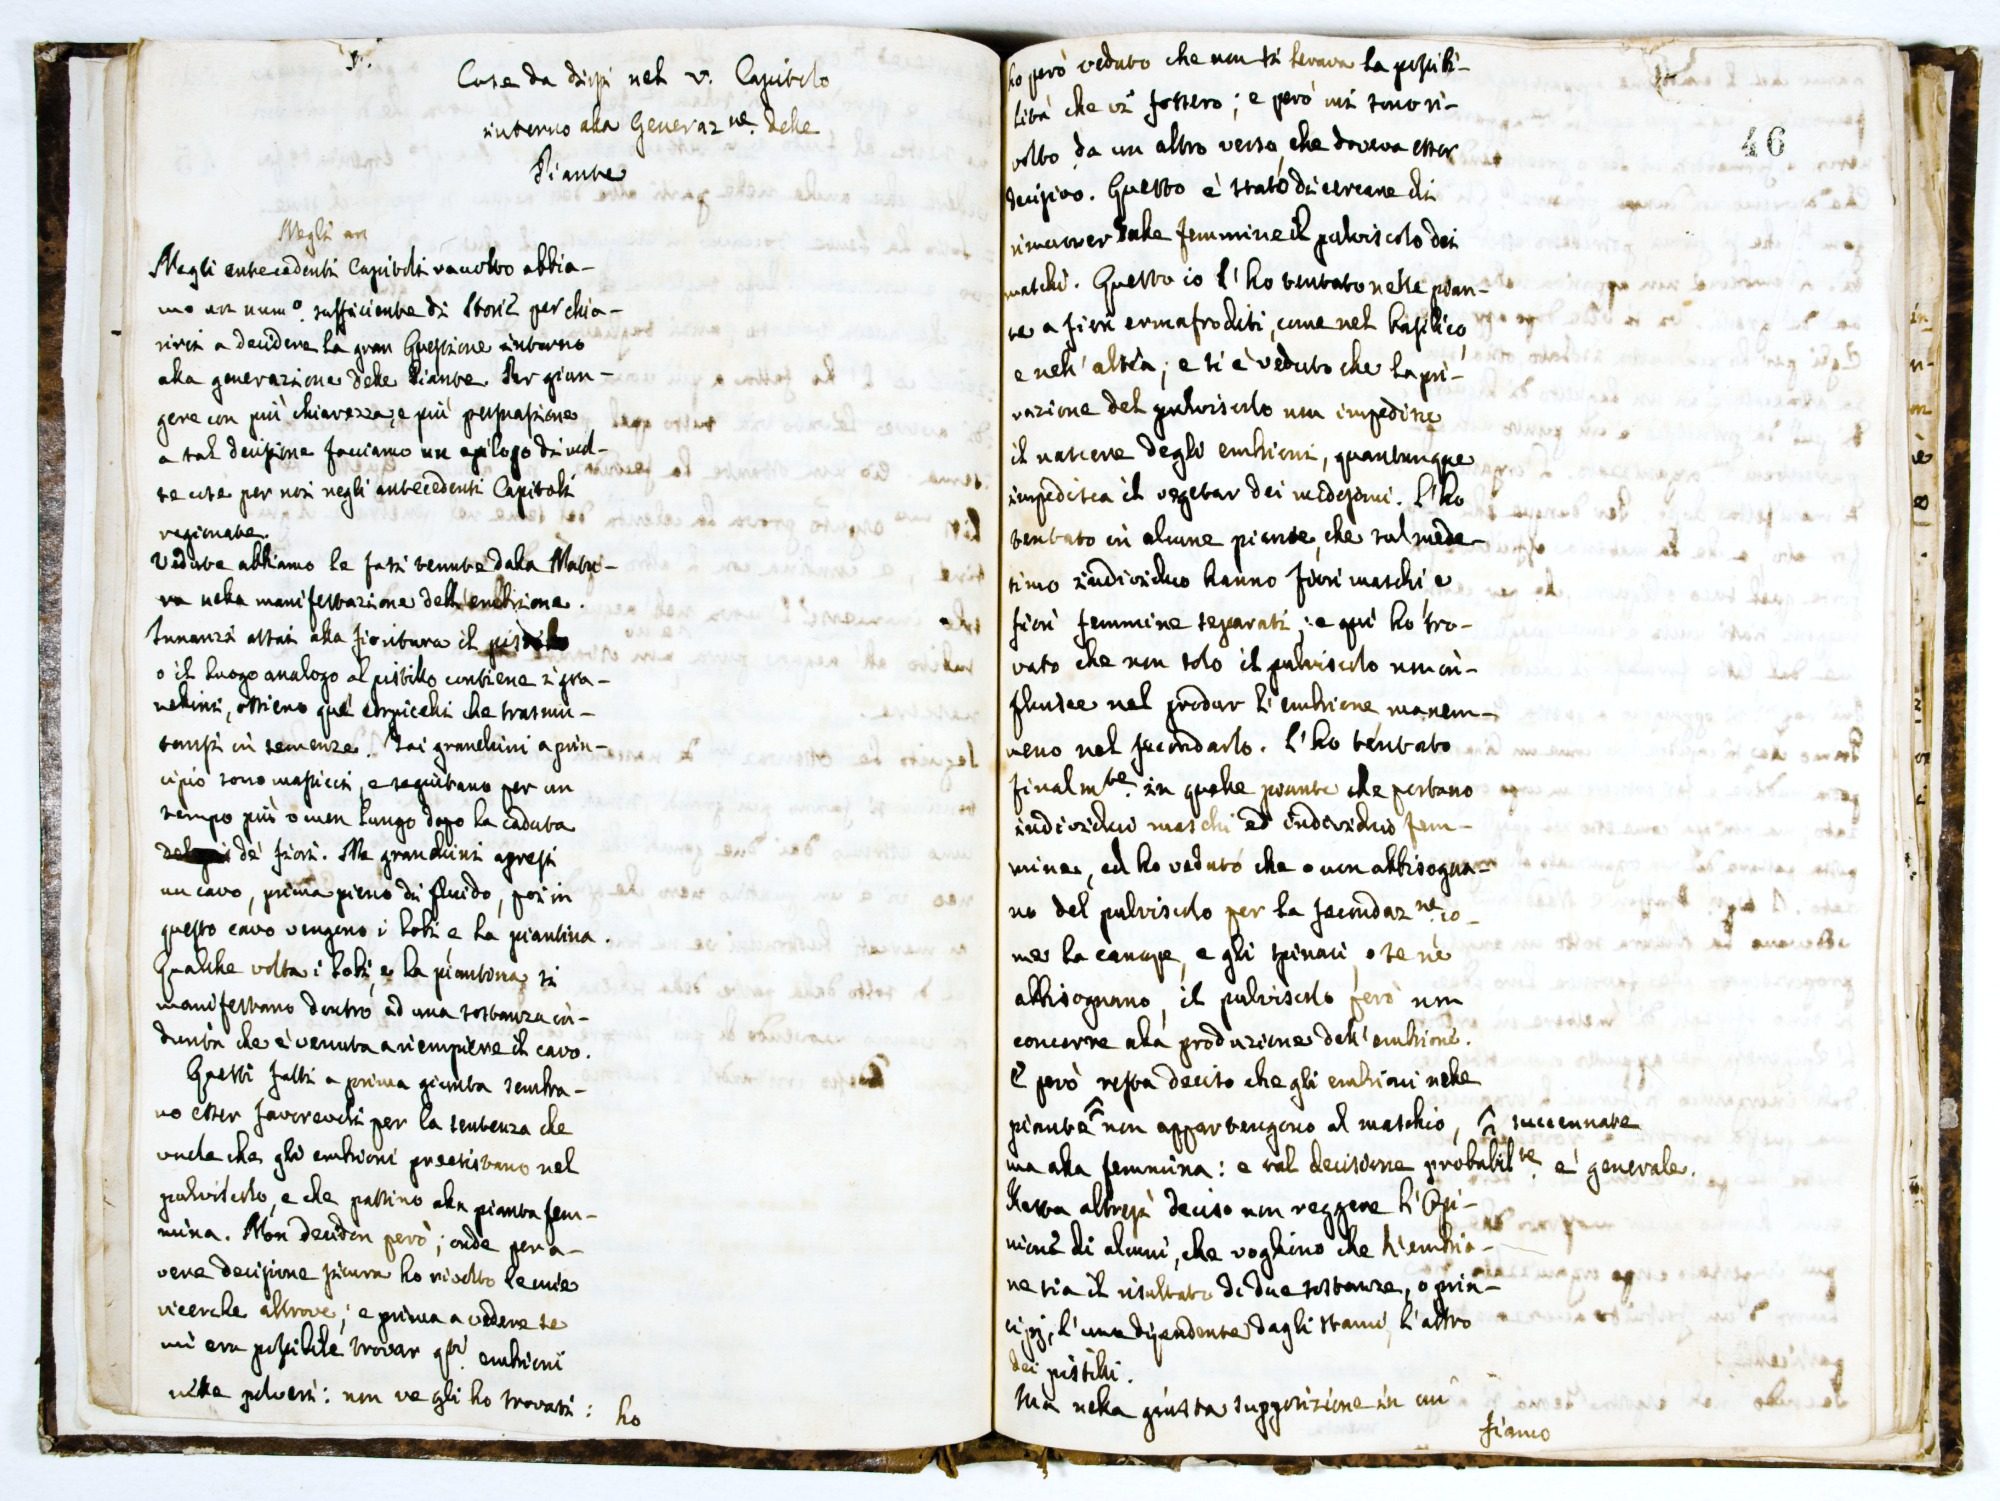 Cose da dirsi nel V. Capitolo
intorno alla Generaz.ne delle
Piante
Negli an
Negli antecedenti Capitoli raccolto abbia-
mo un num.o sufficiente di Storie per chia-
rirci a decidere la gran Questione intorno
alla generazione delle Piante. Per giun-
gere con più chiarezza, e più persuasione
a tal decisione facciamo un epilogo di mol-
te cose per noi negli antecedenti Capitoli
ragionate.
Vedute abbiamo le fasi tenute dalla Natu-
ra nella manifestazione dell'embrione.
Innanzi assai alla fioritura il pistillo
o il luogo analogo al pistillo contiene i gra-
nellini, ossieno que' corpicelli che trasmu-
tansi in semenze. Tai granellini a prin-
cipio sono massicci, e seguitano per un
tempo più o men lungo dopo la caduta
de' fiori. Ne granellini apresi
un cavo, prima pieno di fluido, poi in
questo cavo vengono i lobi e la piantina.
Qualche volta i lobi, e la piantina si
manifestano dentro ad una sostanza in-
durita che è venuta a riempiere il cavo.
Questi fatti a prima giunta sembra-
no esser favorevoli per la sentenza che
vuole che gli embrioni preesistano nel
pulviscolo, e che passino alla pianta fem-
mina. Non decidon però; onde per a-
vere decisione sicura ho rivolto le mie
ricerche altrove; e prima a vedere se
mi era possibile trovar qsti embrioni
nelle polveri: non ve gli ho trovati:
ho
46
ho però veduto che non si levava la possibi-
lità che vi fossero; e però mi sono ri-
volto da un altro verso, che doveva esser
decisivo. Questo è stato di cercare di
rimuover dalle femmine il pulviscolo dei
maschi. Questo io l'ho tentato nelle pian-
te a fiori ermafroditi, come nel basilico,
e nell'altea; e si è veduto che la pri-
vazione del pulviscolo non impedisce
il nascere degli embrioni, quantunque
impedisca il vegetar dei medesimi. L'ho
tentato in alcune piante, che sul mede-
simo individuo hanno fiori maschi e
fiori femmine separati; e qui ho tro-
vato che non solo il pulviscolo non in-
fluisce nel produr l'embrione, ma nem-
meno nel fecondarlo. L'ho tentato
finalm.te in quelle piante che portano
individui maschi ed individui fem-
mine, ed ho veduto che o non abbisogna-
no del pulviscolo per la fecondaz.ne, co-
me la canape, e gli spinaci, o se ne
abbisognano, il pulviscolo però non
concorre alla produzione dell'embrione.
E però resta deciso che gli embrioni nelle
piante non appartengono al maschio, succennate
ma alla femmina: e tal decisione probabil.te è generale.
Resta altresì deciso non reggere l'Opi-
nione di alcuni, che vogliono che l'embrio-
ne sia il risultato di due sostanze, o prin-
cipj, l'una dipendente dagli stami, l'altro
dei pistilli.
Ma nella giusta supposizione in cui
siamo